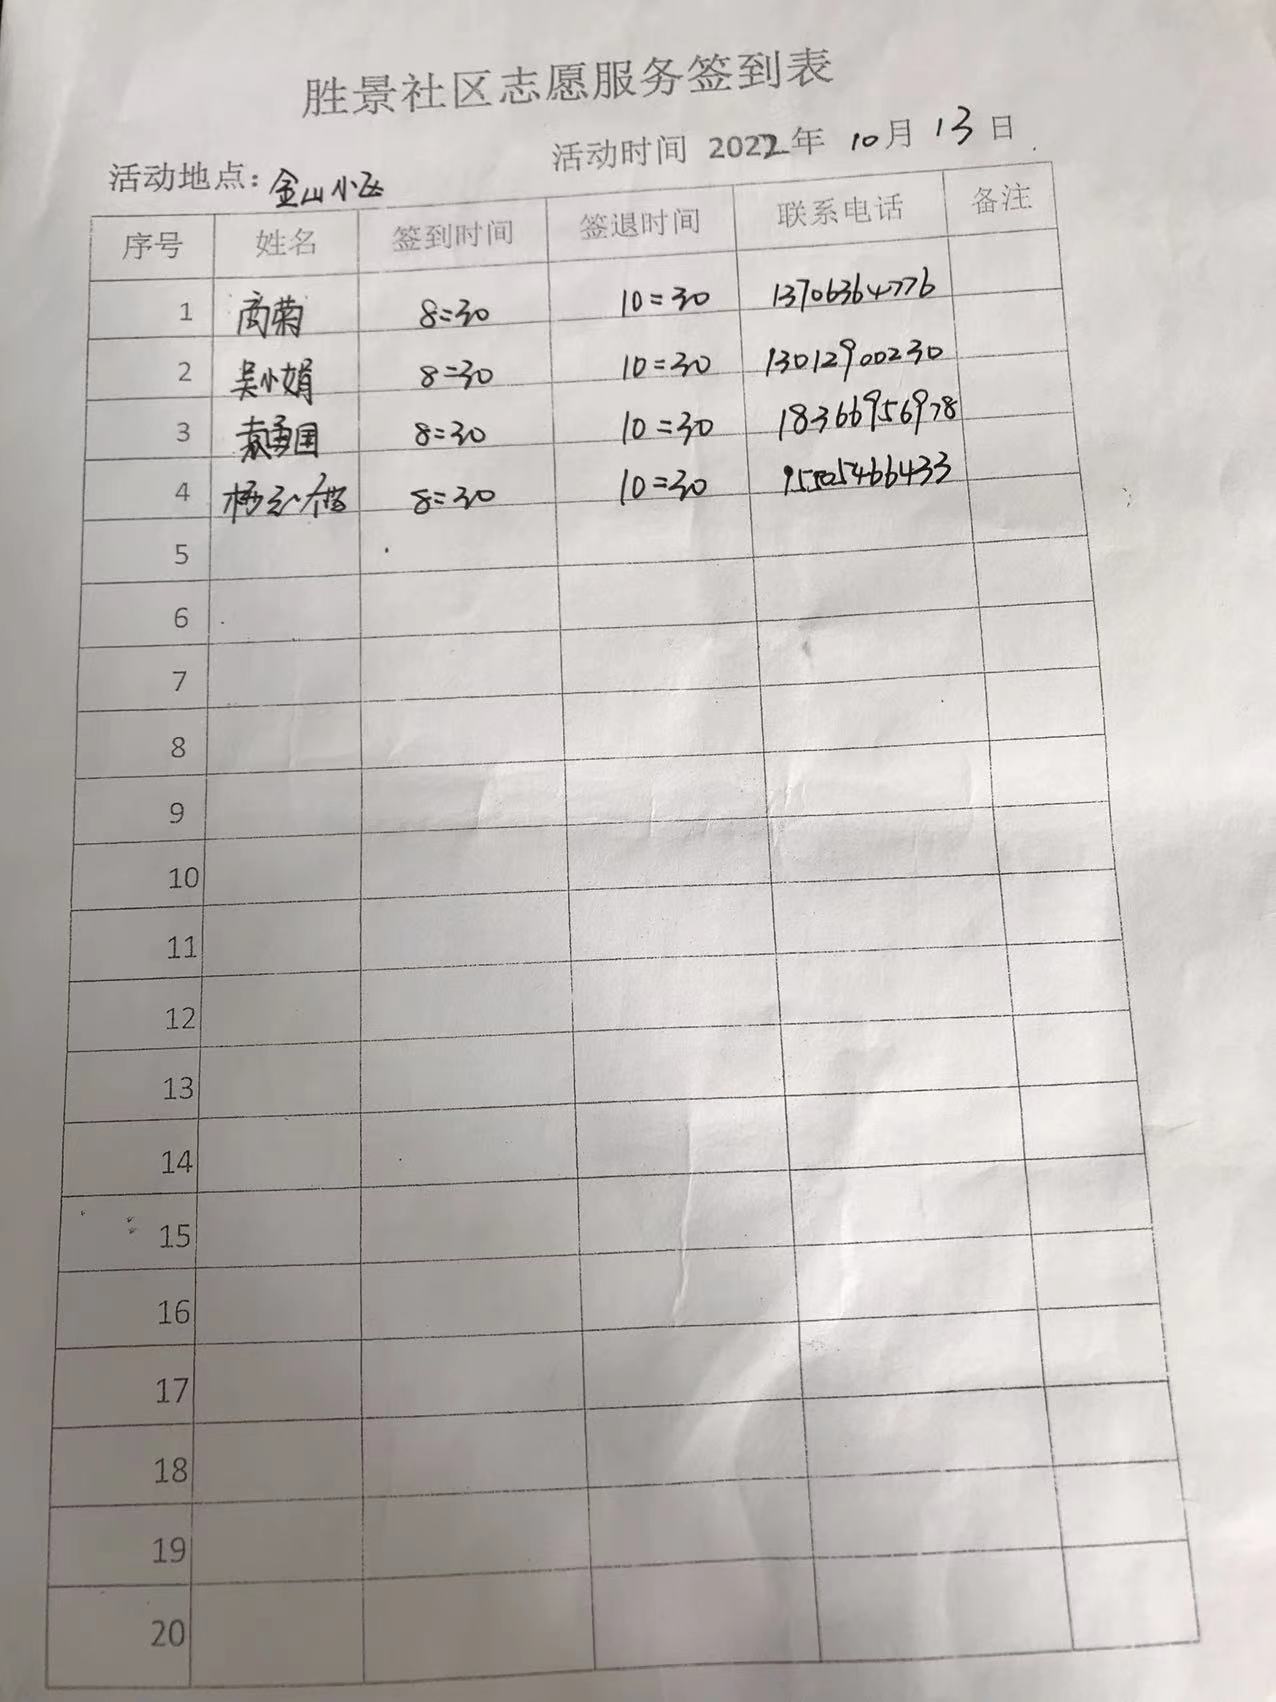 胜景社区志愿服务签到表
活动时间 2022年 10月 13日
活动地点：金山小区
序号 姓名 签到时间 签退时间 联系电话 备注
1 高菊 8=30 10=30 13706364776
2 吴小娟 8=30 10=30 13012900230
3 袁勇国 8=30 10=30 18366956978
4 杨 8=30 10=30
5
6
7
8
9
10
11
12
13
14
15
16
17
18
19
20